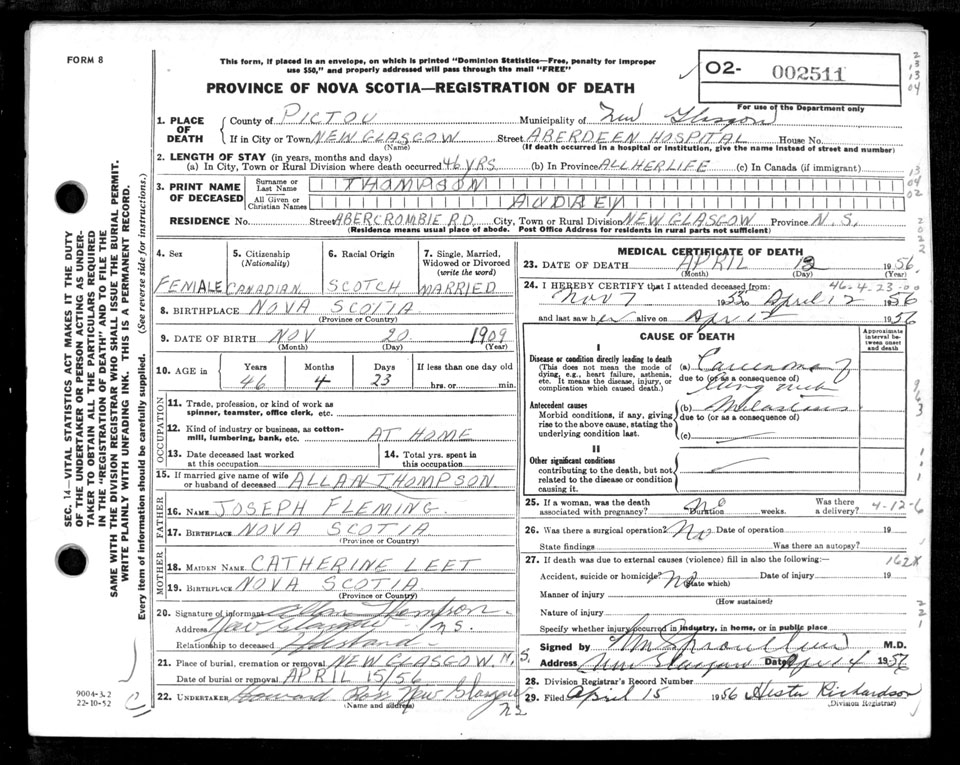 FORM 8
This form, if placed in an envelope, on which is printed "Dominion Statistics—Free, penalty for improper
use $50," and properly addressed will pass through the mail "FREE"
PROVINCE OF NOVA SCOTIA—REGISTRATION OF DEATH
02- 002511
For use of the Department only
1. PLACE OF DEATH
County of PICTOU Municipality of New Glasgow
If in City or Town NEW GLASGOW Street ABERDEEN HOSPITAL House No.
(Name) (If death occurred in a hospital or institution, give the name instead of street and number)
2. LENGTH OF STAY (in years, months and days)
(a) In City, Town or Rural Division where death occurred 46 YRS. (b) In Province ALL HER LIFE (c) In Canada (if immigrant)
3. PRINT NAME OF DECEASED
Surname or Last Name THOMPSON
All Given or Christian Names AUDREY
RESIDENCE No. Street ABERCROMBIE RD. City, Town or Rural Division NEW GLASGOW Province N.S.
(Residence means usual place of abode. Post Office Address for residents in rural parts not sufficient)
4. Sex FEMALE
5. Citizenship (Nationality) CANADIAN
6. Racial Origin SCOTCH
7. Single, Married, Widowed or Divorced (write the word) MARRIED
8. BIRTHPLACE NOVA SCOTIA
(Province or Country)
9. DATE OF BIRTH NOV 20 1909
(Month) (Day) (Year)
10. AGE IN Years Months Days If less than one day old
46 4 23 hrs. or min.
OCCUPATION
11. Trade, profession, or kind of work as
spinner, teamster, office clerk, etc.
12. Kind of industry or business, as cotton-
mill, lumbering, bank, etc. AT HOME
13. Date deceased last worked
at this occupation
14. Total yrs. spent in
this occupation
15. If married give name of wife
or husband of deceased ALLAN THOMPSON
FATHER
16. NAME JOSEPH FLEMING
17. BIRTHPLACE NOVA SCOTIA
(Province or Country)
MOTHER
18. MAIDEN NAME CATHERINE LEET
19. BIRTHPLACE NOVA SCOTIA
(Province or Country)
20. Signature of informant Allan Thompson
Address New Glasgow N.S.
Relationship to deceased Husband
21. Place of burial, cremation or removal NEW GLASGOW, N.S.
Date of burial or removal APRIL 15/56
22. UNDERTAKER Howard Ross New Glasgow
(Name and address) N S
MEDICAL CERTIFICATE OF DEATH
23. DATE OF DEATH APRIL 12 1956
(Month) (Day) (Year)
46-4-23-00
24. I HEREBY CERTIFY that I attended deceased from:
Nov 7 1955 April 12 1956
and last saw her alive on Apr 12 1956
CAUSE OF DEATH
Approximate interval between onset and death
I
Disease or condition directly leading to death
(This does not mean the mode of
dying, e.g., heart failure, asthenia,
etc. It means the disease, injury, or
complication which caused death.)
(a) Carcinoma of
due to (or as a consequence of)
Lung with
Antecedent causes
Morbid conditions, if any, giving
rise to the above cause, stating the
underlying condition last.
(b)
due to (or as a consequence of)
(c)
II
Other significant conditions
contributing to the death, but not
related to the disease or condition
causing it.
25. If a woman, was the death
associated with pregnancy? No Duration weeks. Was there
a delivery? 4-12-6
26. Was there a surgical operation? No Date of operation 19
State findings Was there an autopsy?
27. If death was due to external causes (violence) fill in also the following:— 162X
Accident, suicide or homicide? No (State which) Date of injury 19
Manner of injury
(How sustained)
Nature of injury
Specify whether injury occurred in industry, in home, or in public place
Signed by M.D.
Address New Glasgow Date Apr 14 1956
28. Division Registrar's Record Number
29. Filed April 15 1956 Hester Richardson
(Division Registrar)
SEC. 14—VITAL STATISTICS ACT MAKES IT THE DUTY
OF THE UNDERTAKER OR PERSON ACTING AS UNDER-
TAKER TO OBTAIN ALL THE PARTICULARS REQUIRED
IN THE "REGISTRATION OF DEATH" AND TO FILE THE
SAME WITH THE DIVISION REGISTRAR WHO SHALL ISSUE THE BURIAL PERMIT.
WRITE PLAINLY WITH UNFADING INK. THIS IS A PERMANENT RECORD.
Every item of information should be carefully supplied. (See reverse side for instructions.)
9004-3.2
22-10-52